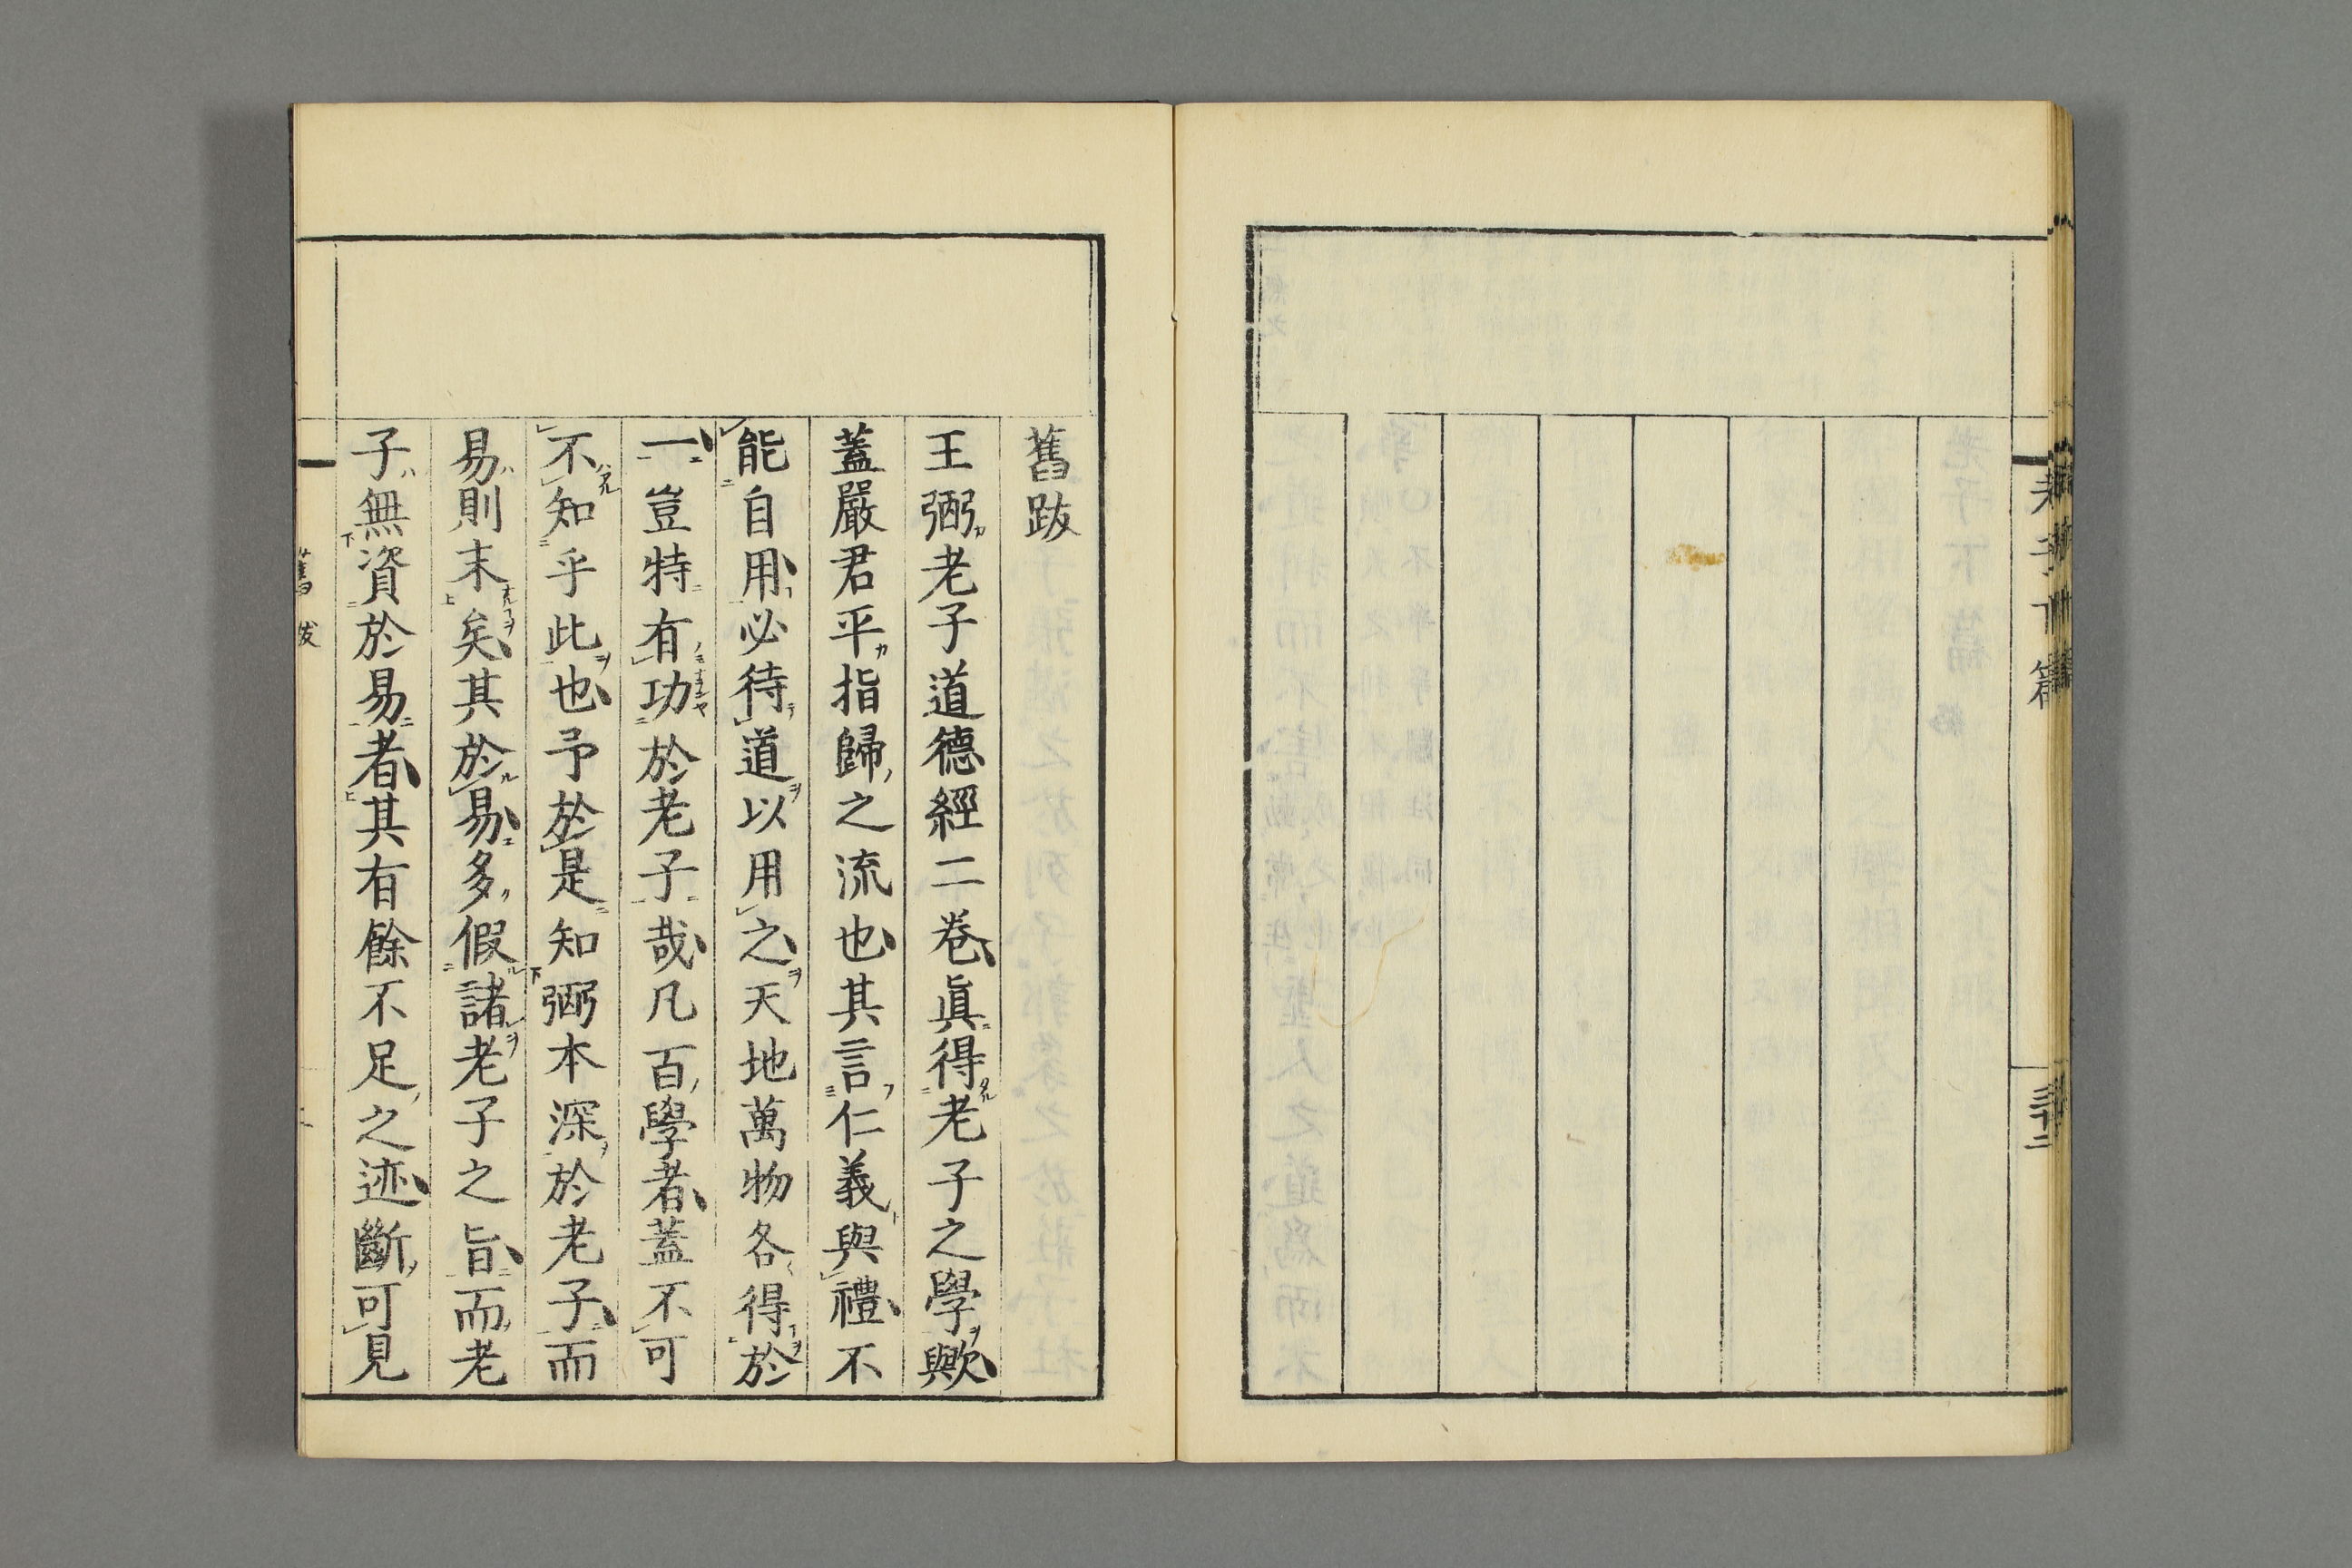 老子下篇
三十二
舊跋
王弼老子道德經二卷眞得老子之學歟
蓋嚴君平指歸之流也其言仁義與禮不
能自用必待道以用之天地萬物各得於
一豈特有功於老子哉凡百學者蓋不可
不知乎此也予於是知弼本深於老子而
易則末矣其於易多假諸老子之旨而老
子無資於易者其有餘不足之迹斷可見
舊跋